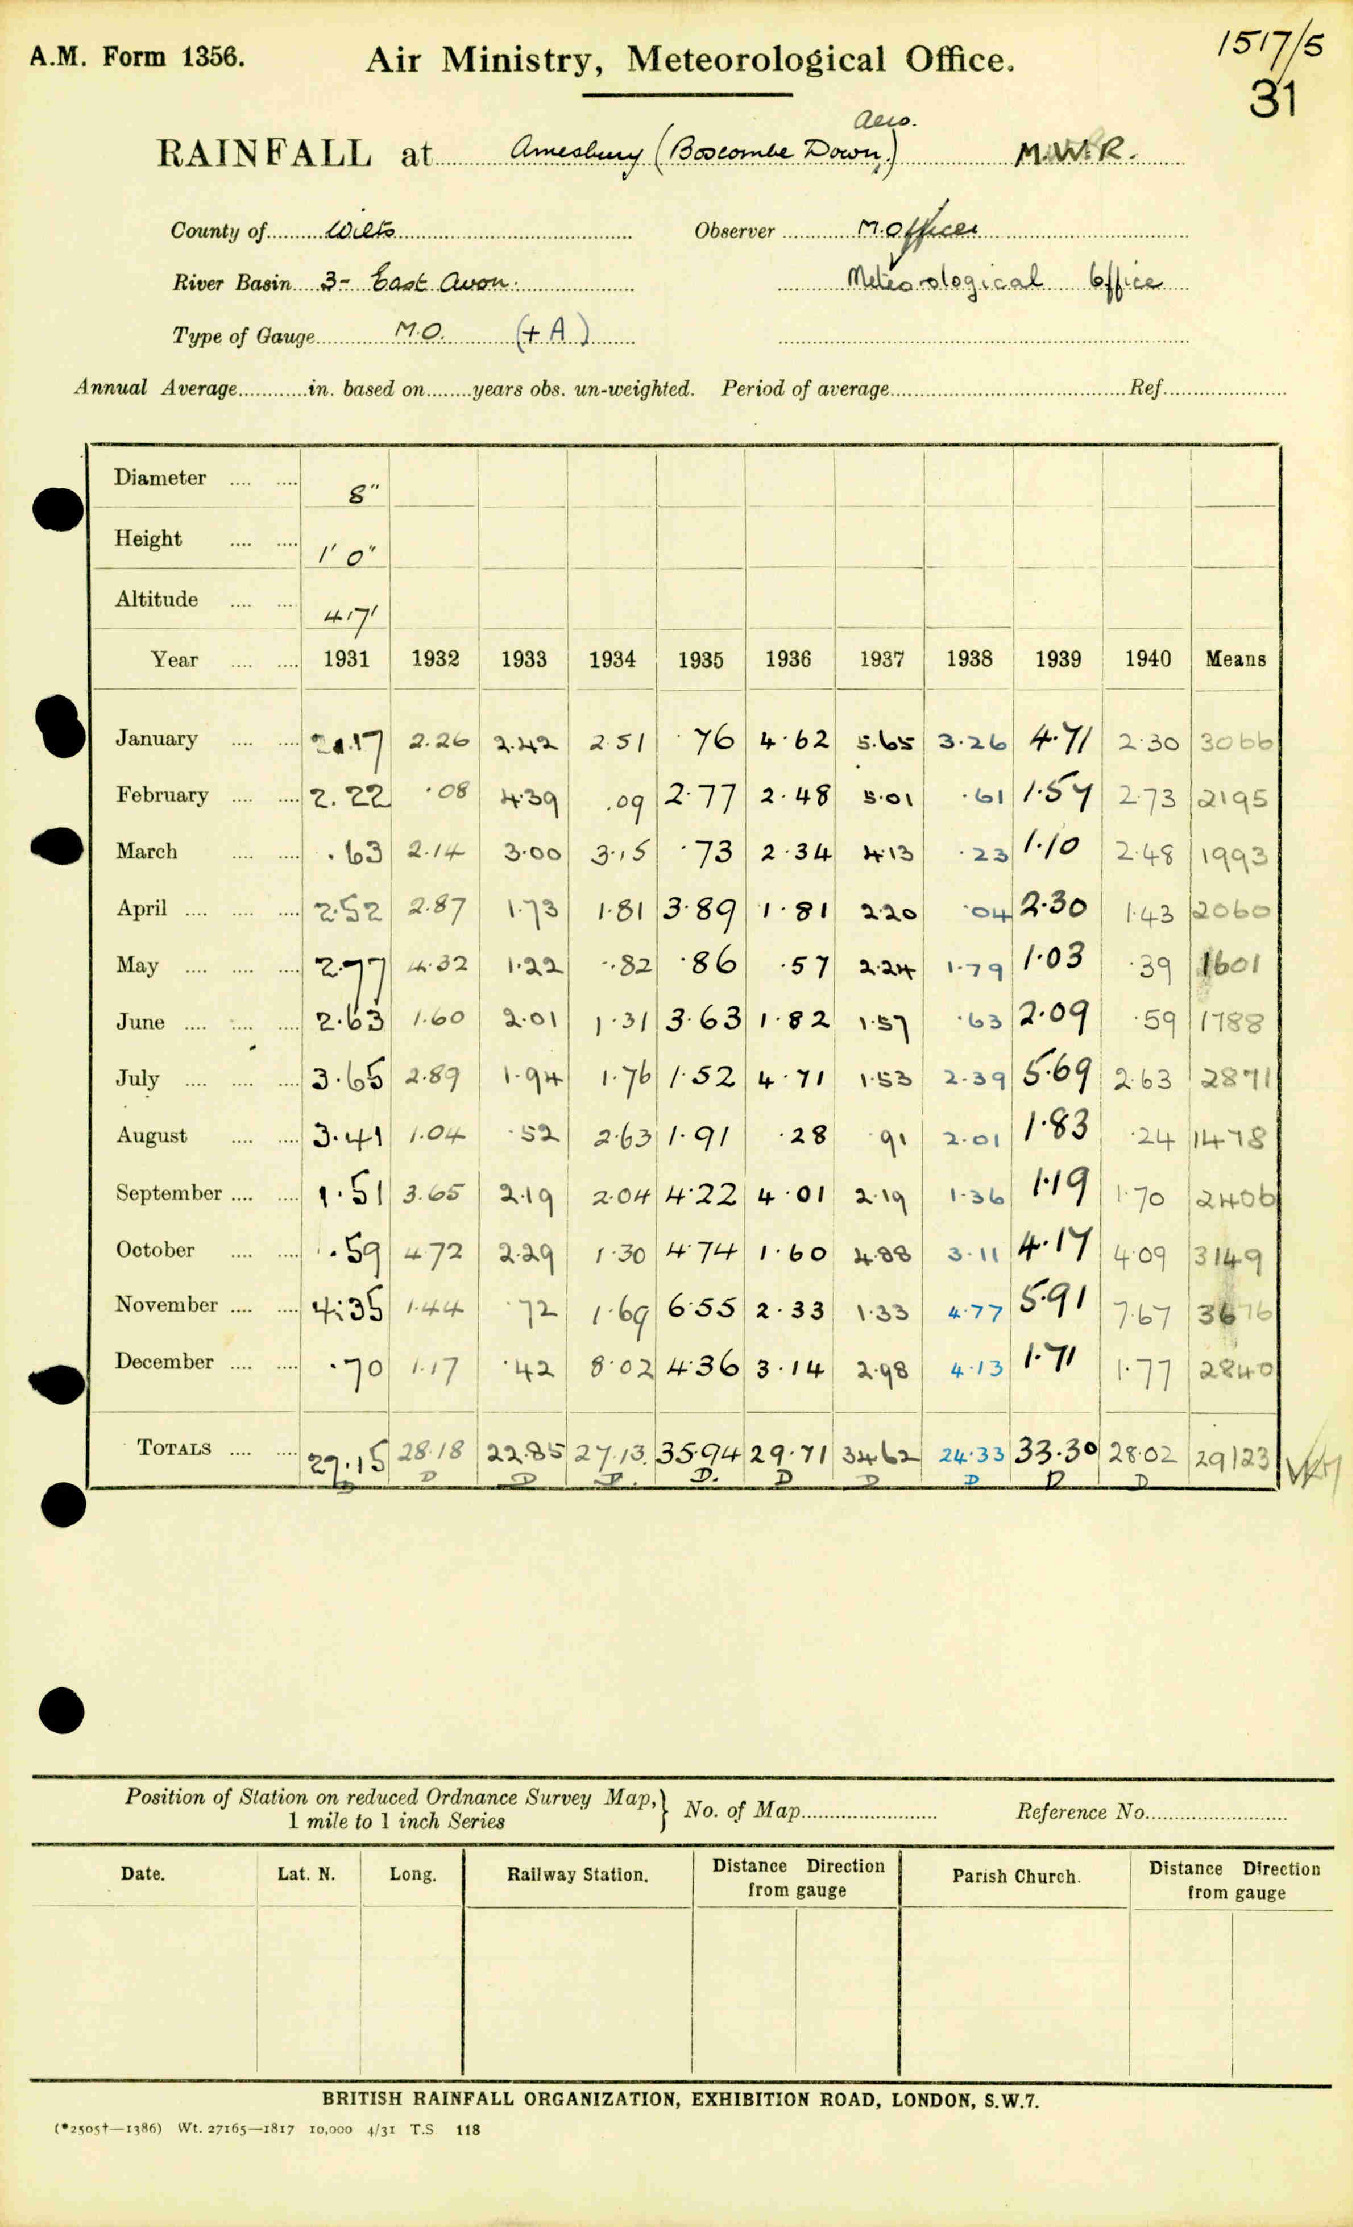 A.M. Form 1356. Air Ministry, Meteorological Office. 1517/5
31
Aero.
RAINFALL at Amesbury (Boscombe Down) M.W.R.
County of Wilts Observer M.Officer
River Basin 3- East Avon. Meteorological Office
Type of Gauge M.O. (+ A)
Annual Average in. based on years obs. un-weighted. Period of average Ref.
Diameter 8"
Height 1' 0"
Altitude 417'
Year 1931 1932 1933 1934 1935 1936 1937 1938 1939 1940 Means
January 2.17 2.26 2.42 2.51 .76 4.62 5.65 3.26 4.71 2.30 3066
February 2.22 .08 4.39 .09 2.77 2.48 5.01 .61 1.57 2.73 2195
March .63 2.14 3.00 3.15 .73 2.34 4.13 .23 1.10 2.48 1993
April 2.52 2.87 1.73 1.81 3.89 1.81 2.20 .04 2.30 1.43 2060
May 2.77 4.32 1.22 .82 .86 .57 2.24 1.79 1.03 .39 1601
June 2.63 1.60 2.01 1.31 3.63 1.82 1.57 .63 2.09 .59 1788
July 3.65 2.89 1.94 1.76 1.52 4.71 1.53 2.39 5.69 2.63 2871
August 3.41 1.04 .52 2.63 1.91 .28 .91 2.01 1.83 .24 1478
September 1.51 3.65 2.19 2.04 4.22 4.01 2.19 1.36 1.19 1.70 2406
October .59 4.72 2.29 1.30 4.74 1.60 4.88 3.11 4.17 4.09 3149
November 4.35 1.44 .72 1.69 6.55 2.33 1.33 4.77 5.91 7.67 3676
December .70 1.17 .42 8.02 4.36 3.14 2.98 4.13 1.71 1.77 2840
TOTALS 27.15 28.18 22.85 27.13 35.94 29.71 34.62 24.33 33.30 28.02 29123
D D D D D. D D D D D
Position of Station on reduced Ordnance Survey Map, } No. of Map Reference No.
1 mile to 1 inch Series
Date. Lat. N. Long. Railway Station. Distance Direction from gauge Parish Church. Distance Direction from gauge
BRITISH RAINFALL ORGANIZATION, EXHIBITION ROAD, LONDON, S.W.7.
(*2505†—1386) Wt. 27165—1817 10,000 4/31 T.S 118